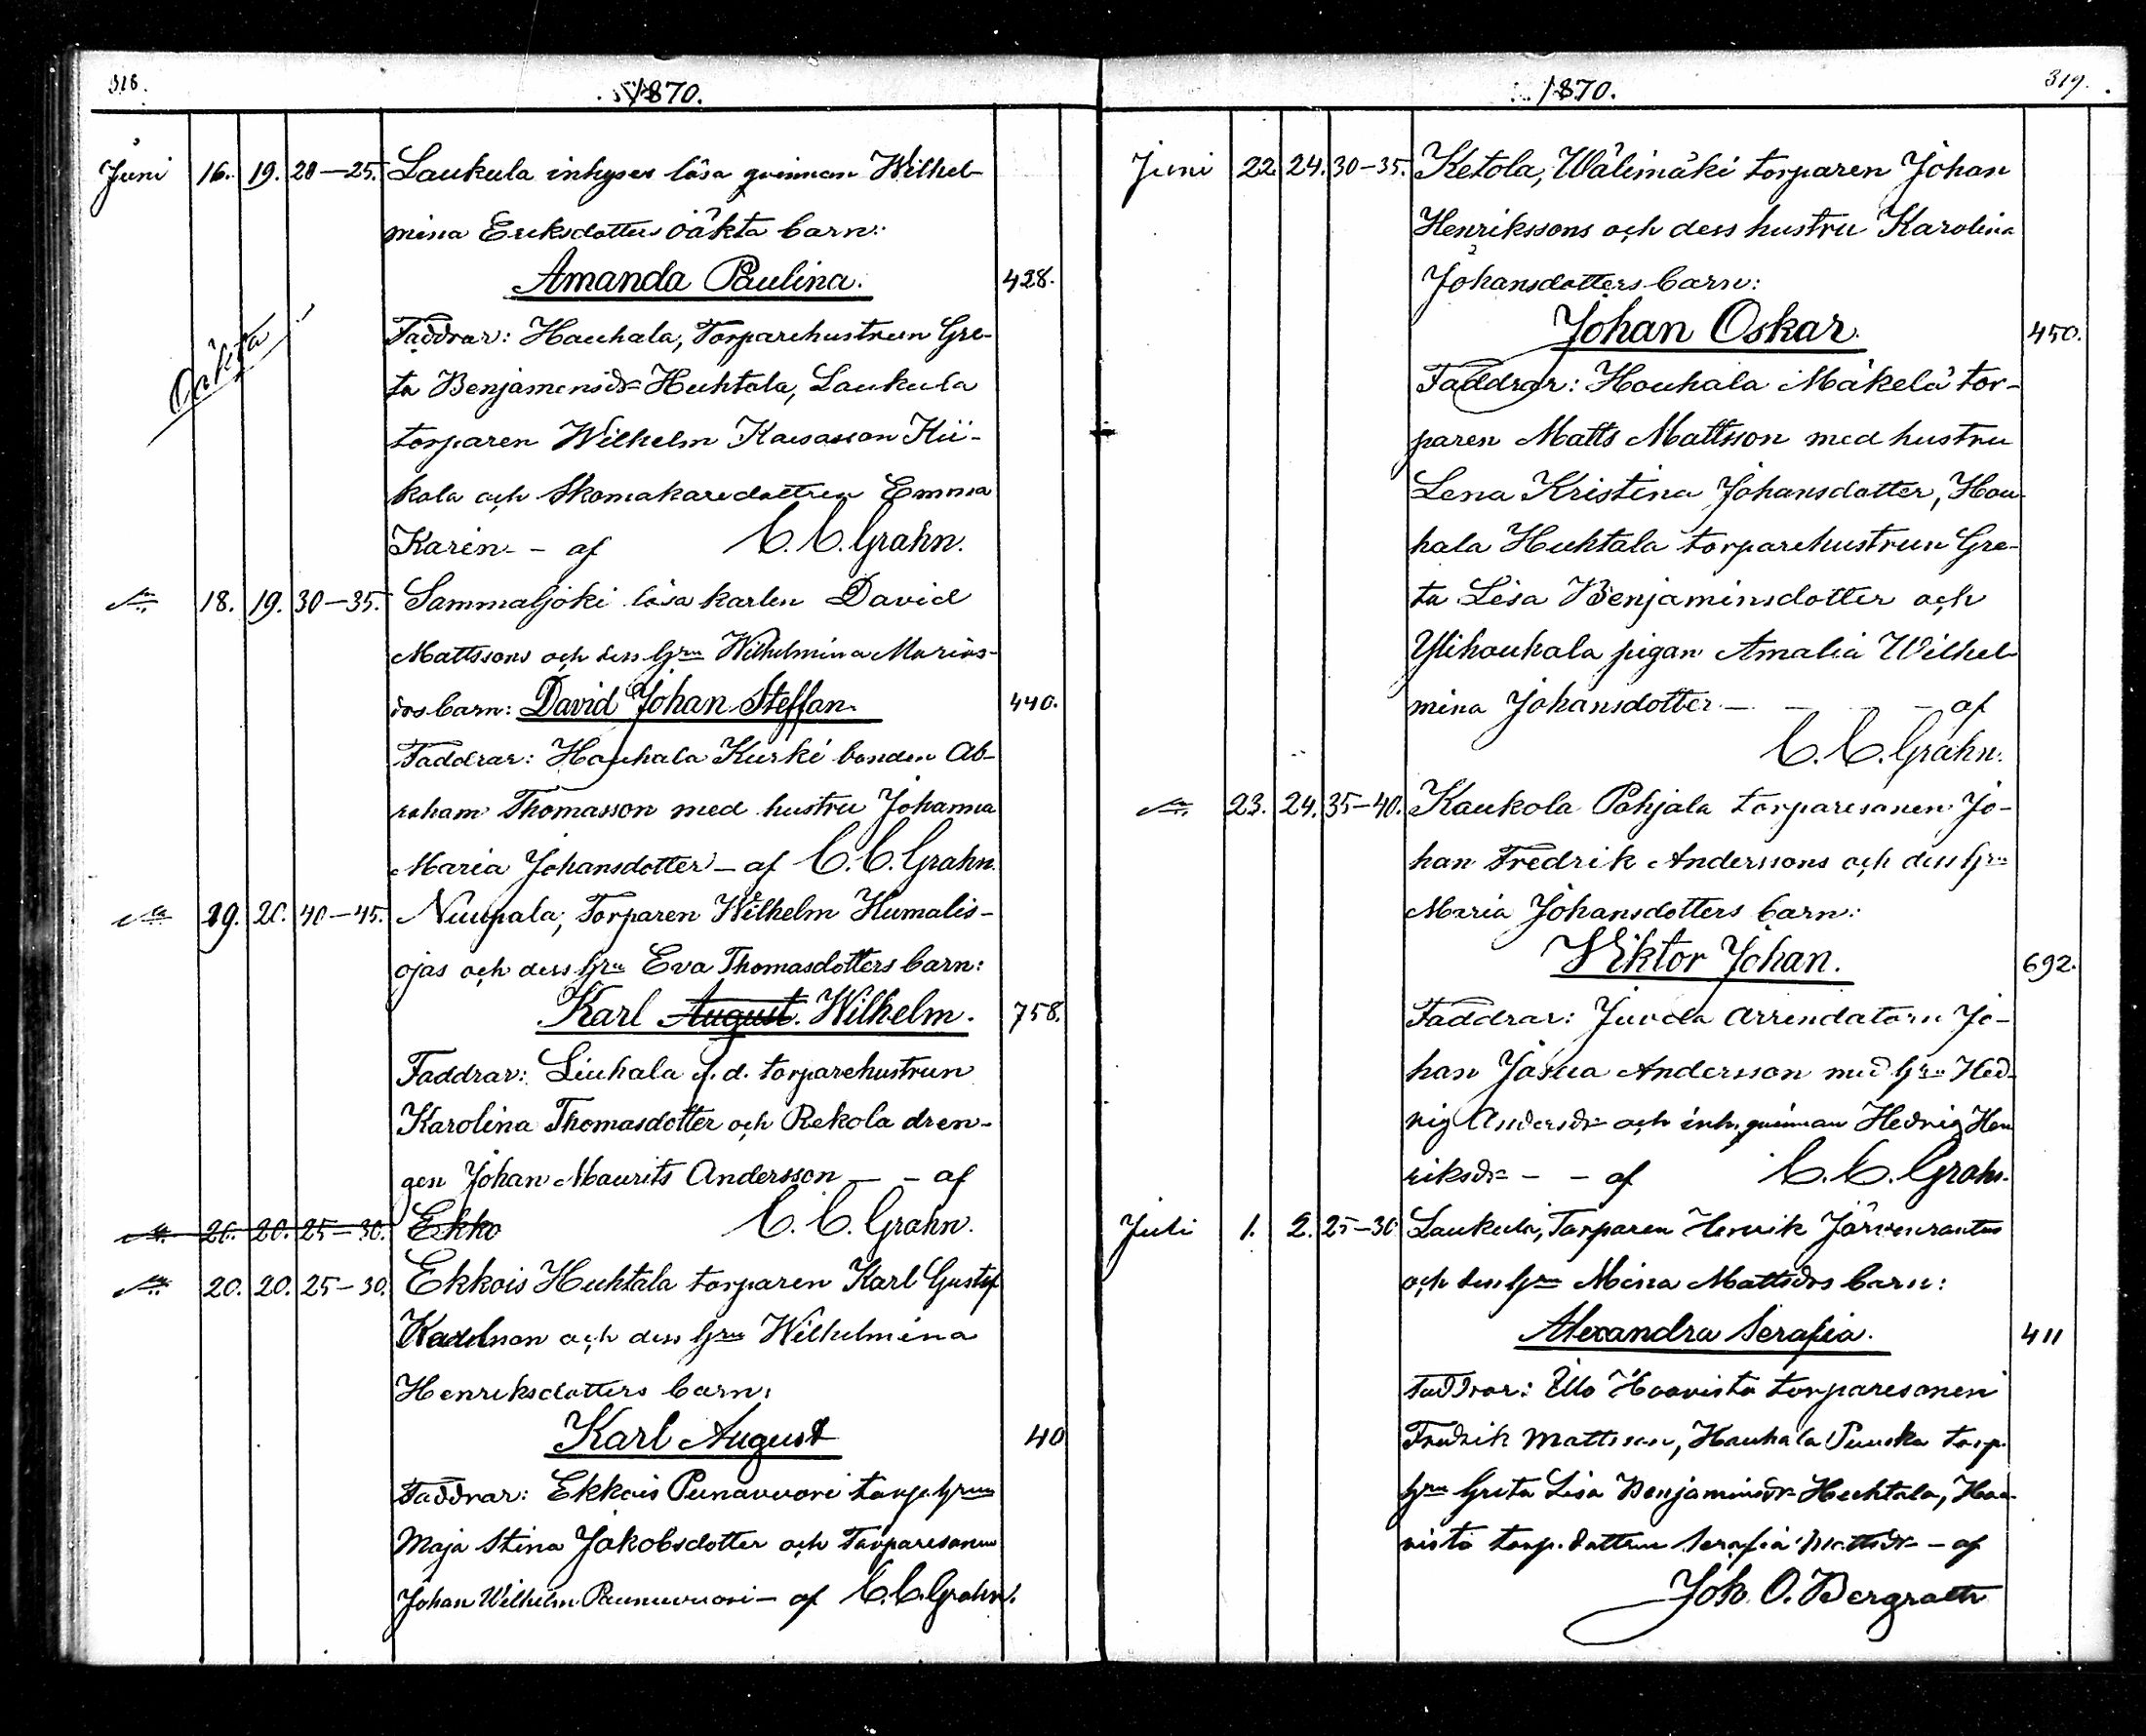 318.
1870.
Juni 16. 19. 20-25. Laukula inhyses lösa qvinnan Wilhel-
mina Eriksdotters oäkta barn:
Amanda Paulina. 428.
Oäkta
Faddrar: Houhala, Torparehustrun Gre-
ta Benjaminsdr Huhtala, Laukula
torparen Wilhelm Kaisasson Kii-
kola och Skomakaredottren Emma
Karin - - af C. C. Grahn.
18. 19. 30-35. Sammaljoki lösa karlen David
Mattssons och dess hru Wilhelmina Marias-
drs barn: David Johan Steffan. 440.
Faddrar: Houhala Kurki bonden Ab-
raham Thomasson med hustru Johanna
Maria Johansdotter - af C. C. Grahn.
19. 20. 40-45. Nuupala, Torparen Wilhelm Humalis-
ojas och dess hru Eva Thomasdotters barn:
Karl August. Wilhelm. 758.
Faddrar: Liuhala f. d. torparehustrun
Karolina Thomasdotter och Rekola dren-
gen Johan Maurits Andersson - - af
20. 20. 25-30. Ekko C. C. Grahn.
20. 20. 25-30. Ekkois Huhtala torparen Karl Gustaf
och dess hru Wilhelmina
Henriksdotters barn:
Karl August 40
Faddrar: Ekkois Punavuori torp. hrun
Maja Stina Jakobsdotter och Torparesonen
Johan Wilhelm Punavuori - af C. C. Grahn.
1870.
319.
Juni 22 24. 30-35. Ketola, Wälimäki torparen Johan
Henrikssons och dess hustru Karolina
Johansdotters barn:
Johan Oskar. 450.
Faddrar: Houhala Mäkelä tor-
paren Matts Mattsson med hustru
Lena Kristina Johansdotter, Hou-
hala Huhtala torparehustrun Gre-
ta Lisa Benjaminsdotter och
Ylihouhala pigan Amalia Wilhel-
mina Johansdotter - - - af
C. C. Grahn.
23. 24. 35-40. Kaukola Pohjala torparesonen Jo-
han Fredrik Anderssons och dess hru
Maria Johansdotters barn:
Wiktor Johan. 692.
Faddrar: Juvola Arrendatorn Jo-
han Josua Andersson med hru Hed-
vig Andersdr och inh. qvinnan Hedvig Hen
riksdr - - af C. C. Grahn.
Juli 1. 2. 25-30 Laukula, Torparen Henrik Järvenrantas
och dess hru Mina Mattsdrs barn:
Alexandra Serafia. 411
Faddrar: Illo Haavisto torparesonen
Fredrik Mattsson, Houhala Puuska torp.
hru Greta Lisa Benjaminsdr Huhtala, Haa-
visto torp. dottren Serafia Mattsdr - af
Joh. O. Bergroth